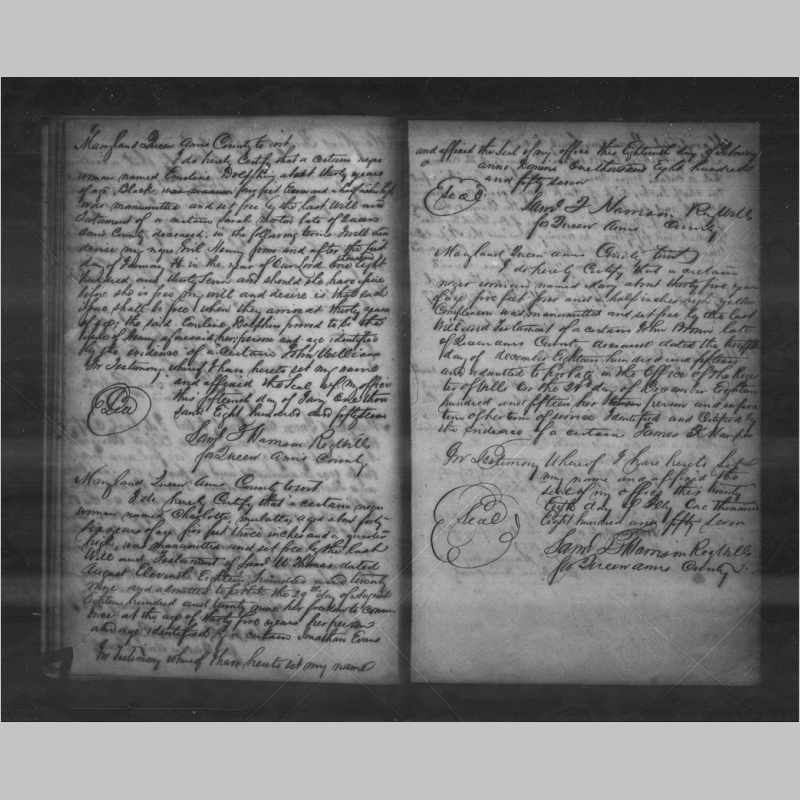 Maryland Queen Anns County to wit
I do hereby Certify that a certain negro
woman named Emeline Dolfhin about thirty years
of age Black was five feet and a half inches high
was manumitted and set free by the last Will and
testament of a certain Sarah late of Queen
Anns County deceased, in the following terms I will and
desire my negro Girl Henny from and after the first
day of January in the year of Our Lord One thousand Eight
hundred and thirty Seven and should she have issue
before she is free my will and desire is that such
issue shall be free when they arrive at thirty years
of age, the said Emeline Dolfhin proved to be the
issue of Henny aforesaid her person and age identified
by the evidence of a certain John Williams
In Testimony whereof I have hereto set my name
and affixed the Seal of my office
this fifteenth day of One thou
sand Eight hundred and fifty seven
Seal
Saml. T Harrison Reg Wills
for Queen Anns County
Maryland Queen Anns County to wit
I do hereby Certify that a certain negro
woman named Charlotte, mulatto, aged about forty
years of age five feet three inches and a quarter
high, was manumitted and set free by the last
Will and Testament of W Thomas dated
August Eleventh Eighteen hundred and twenty
nine and admitted to probate the 29th day of August
Eighteen hundred and twenty nine her freedom to comm
ence at the age of thirty five years her person
and age identified by a certain Jonathan Evans
In Testimony whereof I have hereto set my name
and affixed the Seal of my office this Eighteenth day of February
anno Domini One thousand Eight hundred
and fifty seven
Seal
Saml. T Harrison Reg Wills
for Queen Anns County
Maryland Queen Anns County to wit
I do hereby Certify that a certain
negro woman named Mary about thirty five years
of age five feet four and a half inches high yellow
Complexion was manumitted and set free by the last
Will and Testament of a certain John Brown late
of Queen Anns County deceased dated the twelfth
day of december Eighteen hundred and fifteen
and admitted to probate in the Office of the Regis
ter of Wills on the day of December Eighteen
hundred and fifteen her person and
term of her time of service Identified and Certified by
the evidence of a certain James
In Testimony Whereof I have hereto Set
my name and affixed the
seal of my office this twenty
Eighth day of Feby One thousand
Eight hundred and fifty seven
Seal
Saml. T Harrison Reg Wills
for Queen Anns County